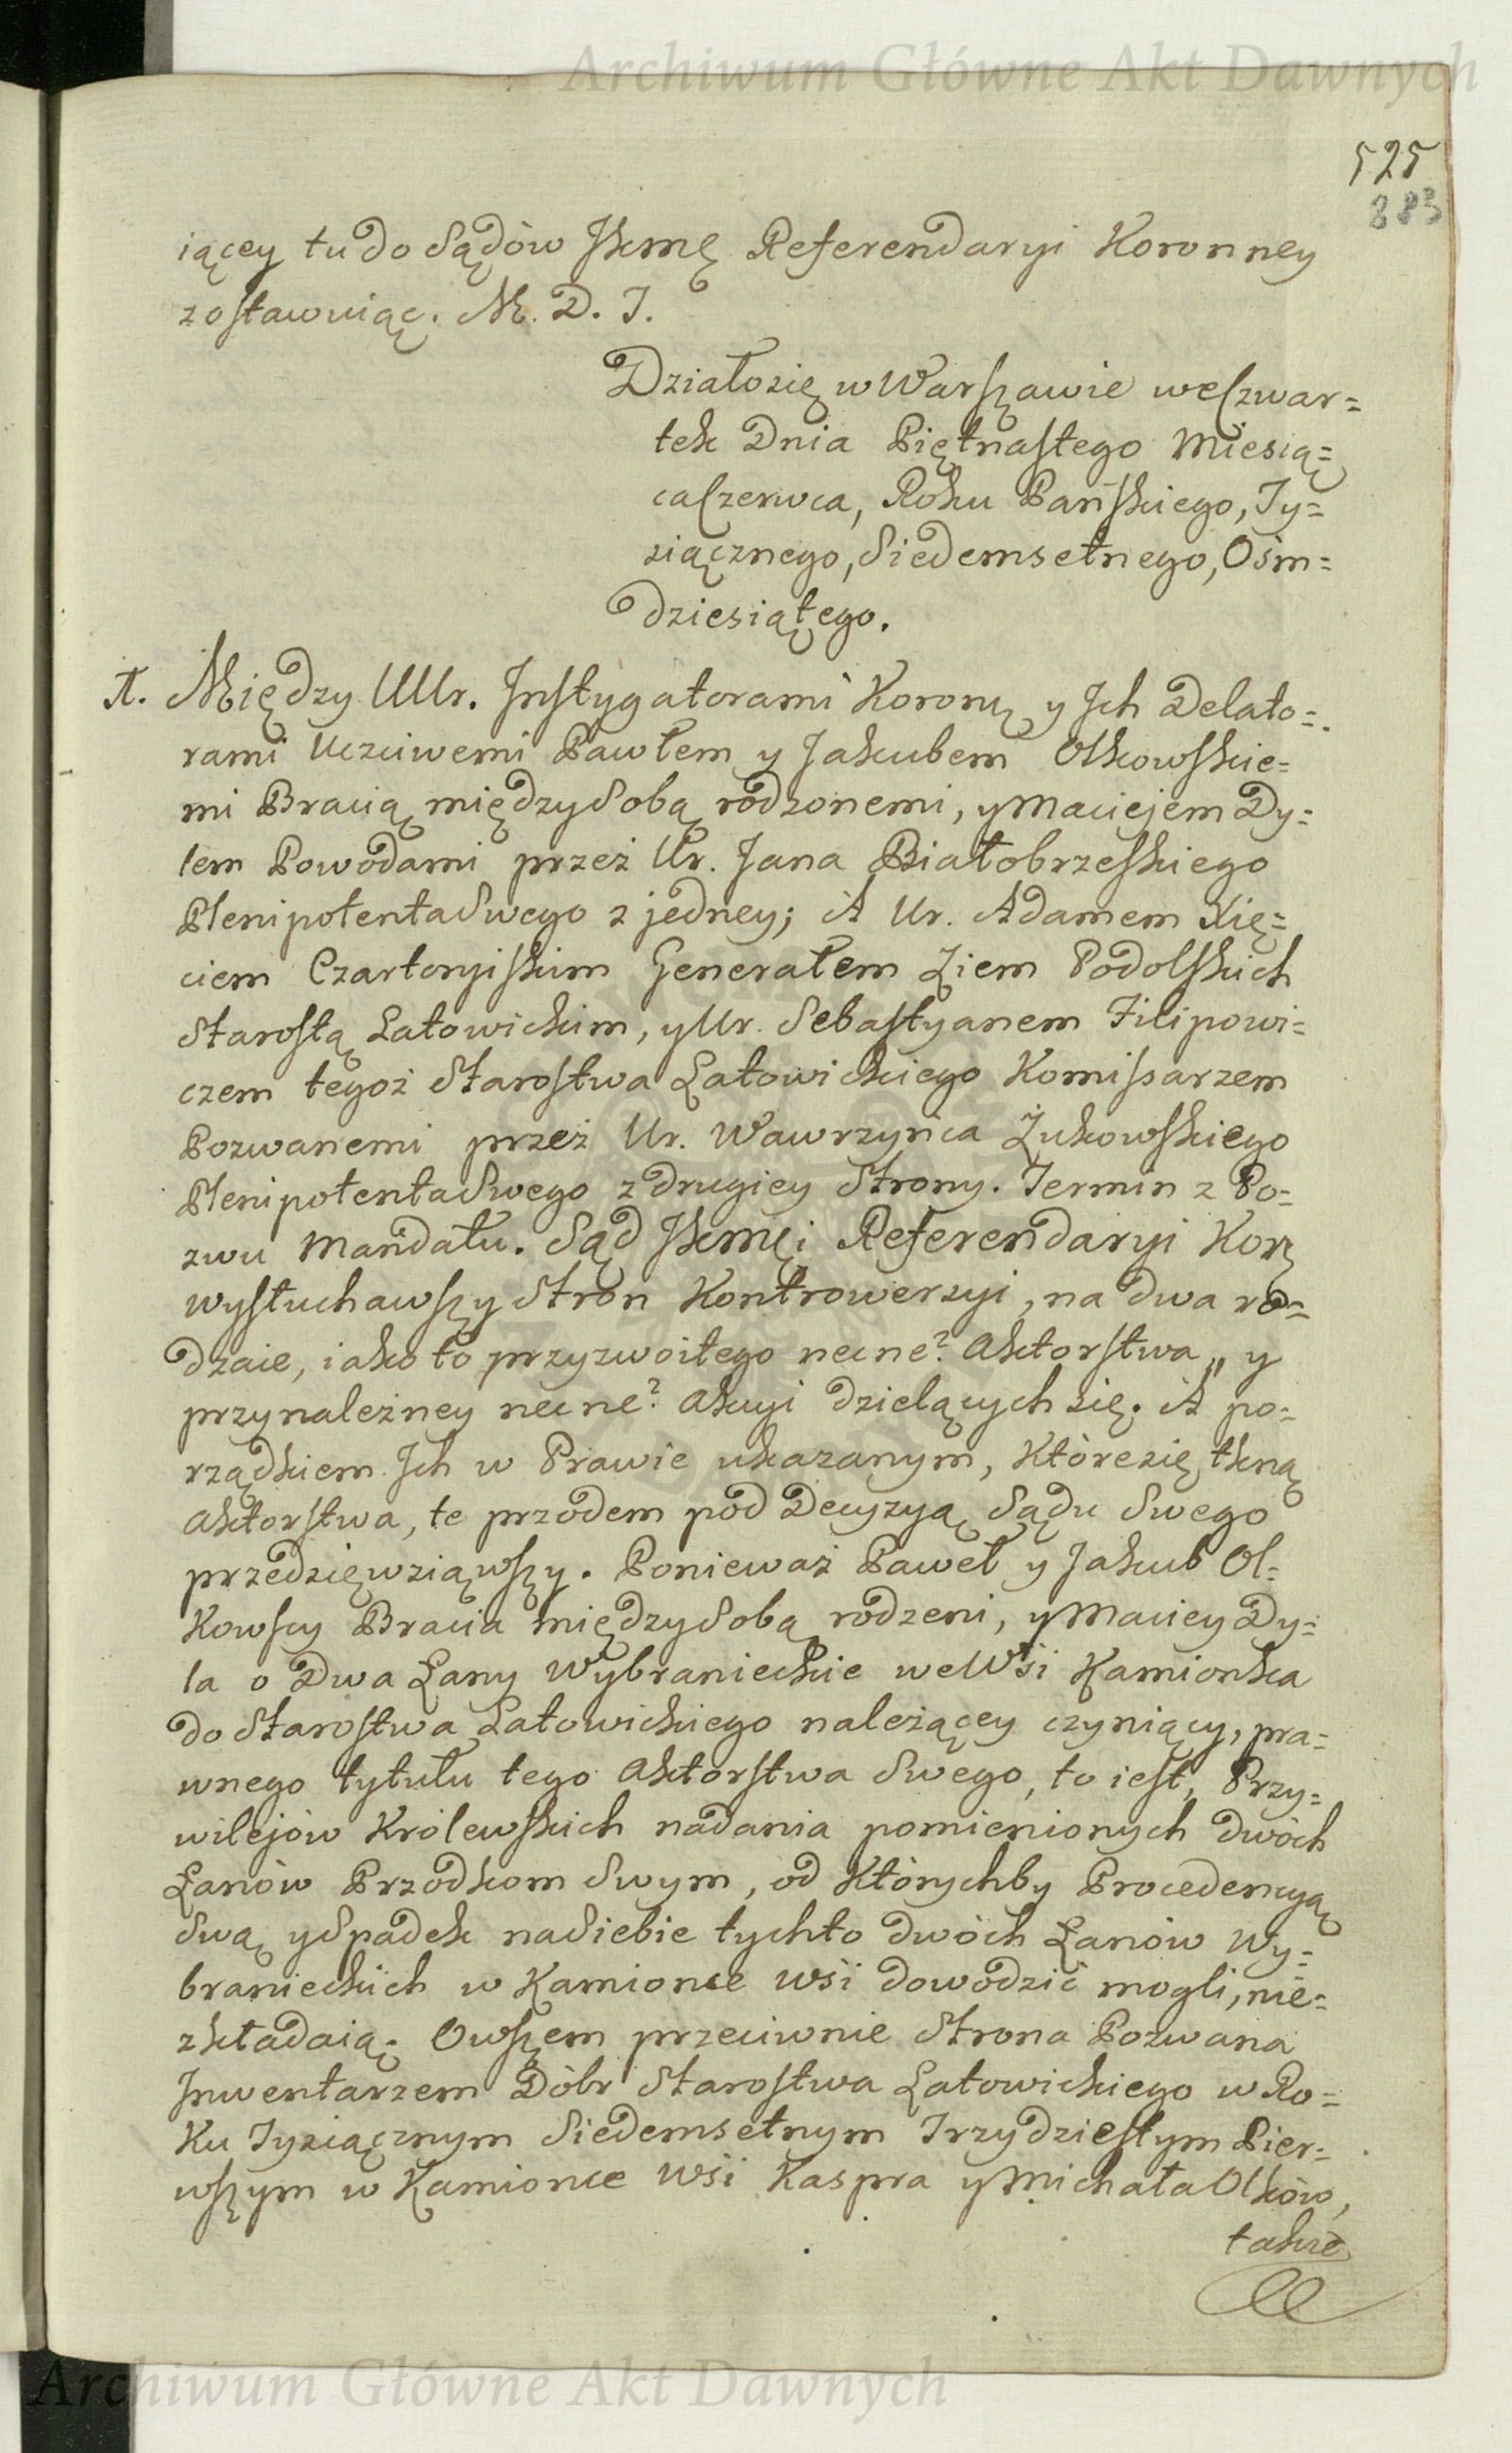 Archiwum Główne Akt Dawnych
525
883
iącey tu do Sądów JKmę Referendaryi Koronney
zostawuiąc. M. D. J.
Działosię w Warszawie weCzwar=
tek Dnia Piętnastego Miesią=
caCzerwca, Roku Pańskiego, Ty=
siącznego, Siedemsetnego, Osim=
dziesiątego.
A. Między UUr. Instygatorami Koronę y Jch Delato=
rami Uczciwemi Pawłem y Jakubem Olkowskie=
mi Bracią międzysobą rodzonemi, y Maciejem Dy=
lem Powodami przez Ur. Jana Białobrzeskiego
PlenipotentaSwego z jedney; A Ur. Adamem Xię=
ciem Czartoryiskim Generałem Ziem Podolskich
Starostą Latowickim, y Ur. Sebastyanem Filipowi=
czem tegoż Starostwa Latowickiego Komissarzem
Pozwanemi przez Ur. Wawrzyńca Żukowskiego
PlenipotentaSwego z drugiey Strony. Termin z Po=
zwu Mandatu. Sąd JKmęi Referendaryi Kor
wysłuchawszy Stron Kontrowersyi, na dwa ro=
dzaie, iako to przyzwoitego necne? Aktorstwa, y
przynależney necne? Akcyi dzielących się. A po=
rządkiem Jch w Prawie ukazanym, Któresię tkną
Aktorstwa, te przodem pod Decyzyą Sądu Swego
przedzięwziąwszy. Ponieważ Paweł y Jakub Ol=
Kowscy Bracia międzysobą rodzeni, y Maciey Dy=
la o Dwa Łany Wybranieckie we Wsi Kamionka
do Starostwa Latowickiego należącey czyniący, pra=
wnego tytułu tego Aktorstwa Swego, to iest, Przy=
wilejów Królewskich nadania pomienionych dwóch
Łanów Przodkom Swym, od Którychby Procedencyą
Swą y Spadek na Siebie tychto dwóch Łanów Wy=
branieckich w Kamionce Wsi dowodzić mogli, nie=
zkładaią. Owszem przeciwnie Strona Pozwana
Jnwentarzem Dóbr Starostwa Latowickiego w Ro=
Ku Tysiącznym Siedemsetnym Trzydziestym Pier=
wszym w Kamionce Wsi Kaspra y Michała Olków,
także
Archiwum Główne Akt Dawnych